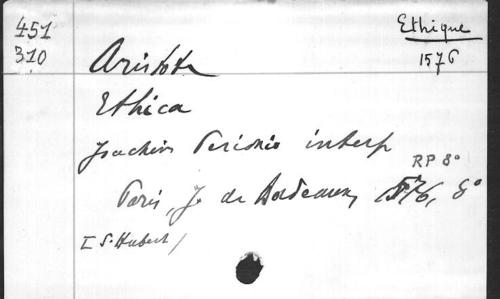 451
310
Ethique
1576
Aristote
Ethica
Joachim Perionio interp
RP 8°
Paris, J. de Bordeaux, 1576, 8°
[S. Hubert]